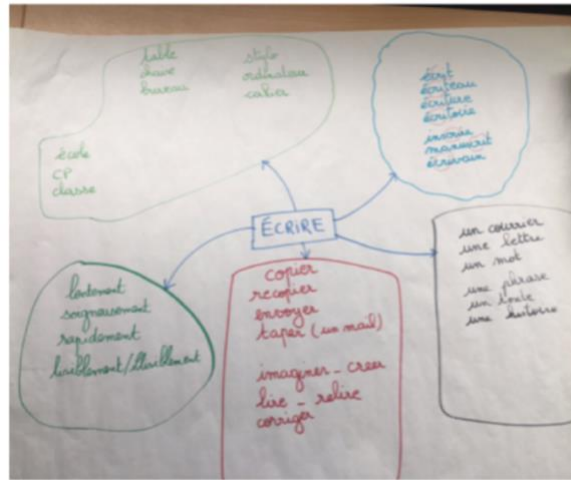 table
chaise
bureau
stylo
ordinateur
cahier
école
CP
classe
écrit
écriteau
écriture
écritoire
manuscrit
écrivain
ÉCRIRE
lentement
soigneusement
rapidement
lisiblement/illisiblement
copier
recopier
envoyer
taper (un mail)
imaginer - créer
lire - relire
corriger
un courrier
une lettre
un mot
une phrase
un texte
une histoire